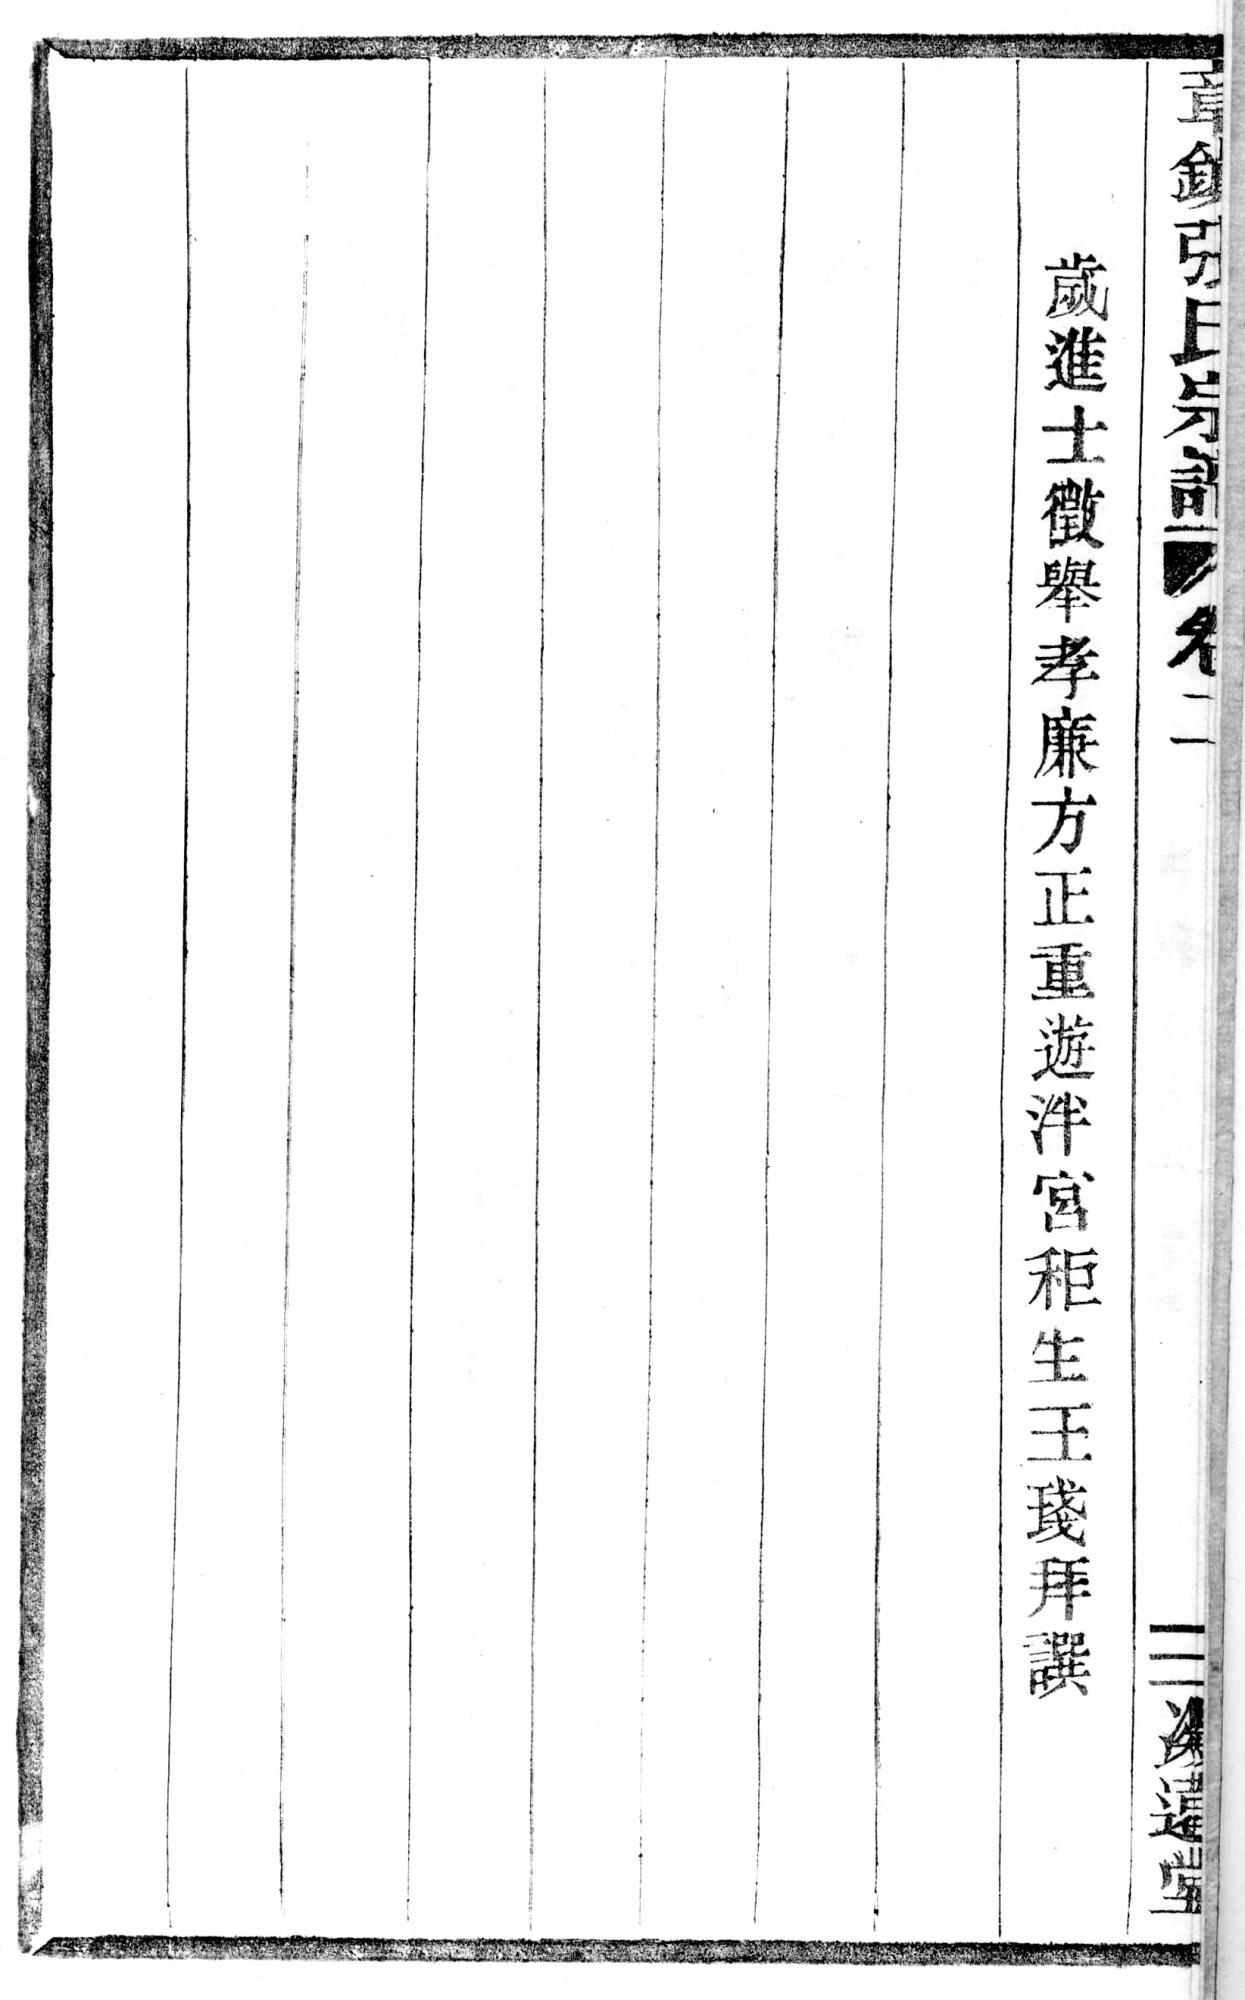 章鎮張氏宗譜 卷二 三 追遠堂
歲進士徵舉孝廉方正重遊泮宮秬生王琖拜譔